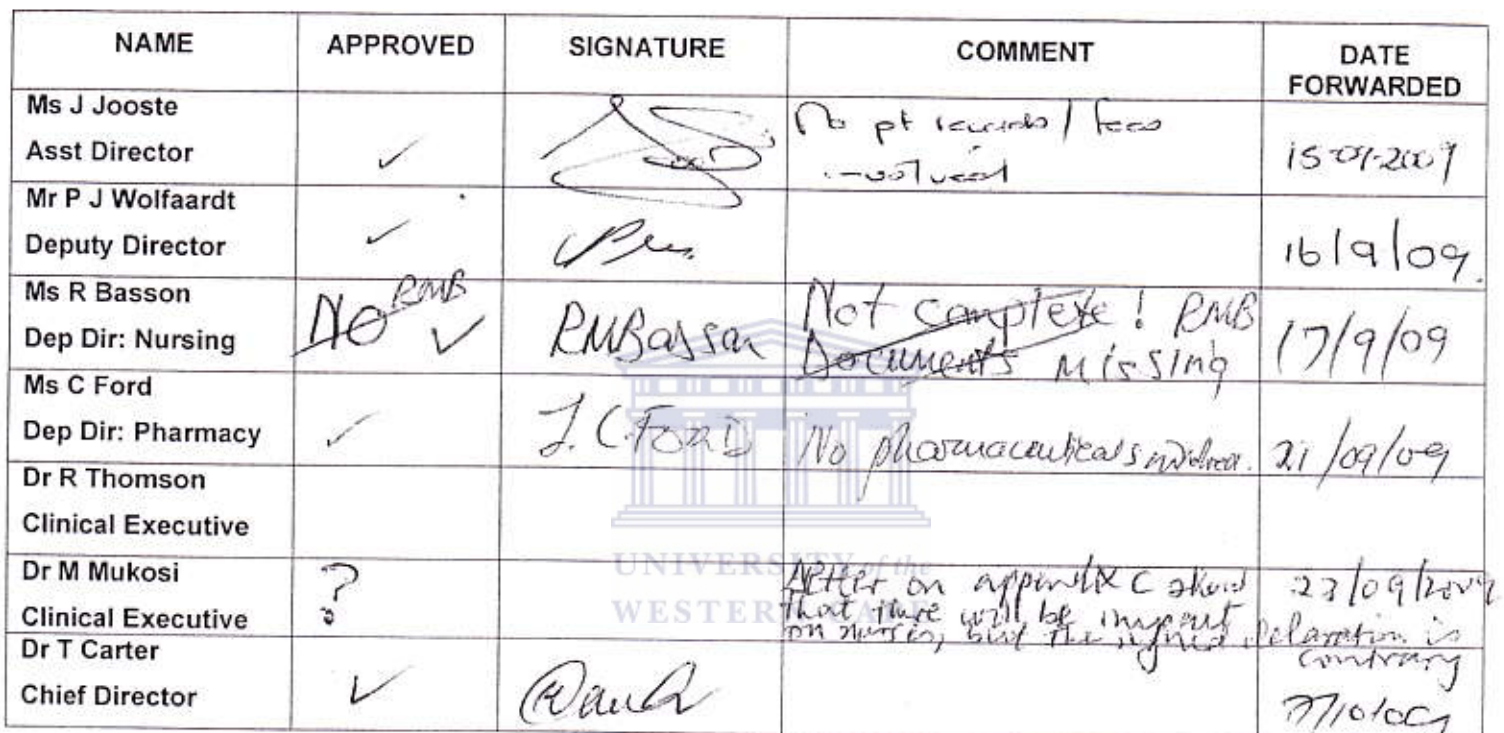 NAME APPROVED SIGNATURE COMMENT DATE FORWARDED
Ms J Jooste
Asst Director ✓ No pt records / fees involved 15-09-2009
Mr P J Wolfaardt
Deputy Director ✓ 16/9/09.
Ms R Basson
Dep Dir: Nursing NO RMB ✓ RMBasson Not complete! RMB
Documents missing 17/9/09
Ms C Ford
Dep Dir: Pharmacy ✓ J.C.FORD No pharmaceuticals involved. 21/09/09
Dr R Thomson
Clinical Executive
Dr M Mukosi
Clinical Executive ? on appendix C 23/09/2009
that there will be impact
on nurses, but the signed declaration is
contrary
Dr T Carter
Chief Director ✓
UNIVERSITY of the
WESTERN CAPE